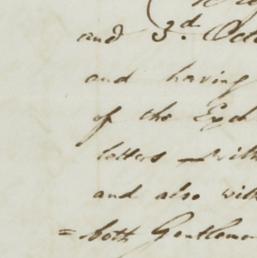 and 3.d Oct
and having
of the
letters with
and also with
= both Gentlemen